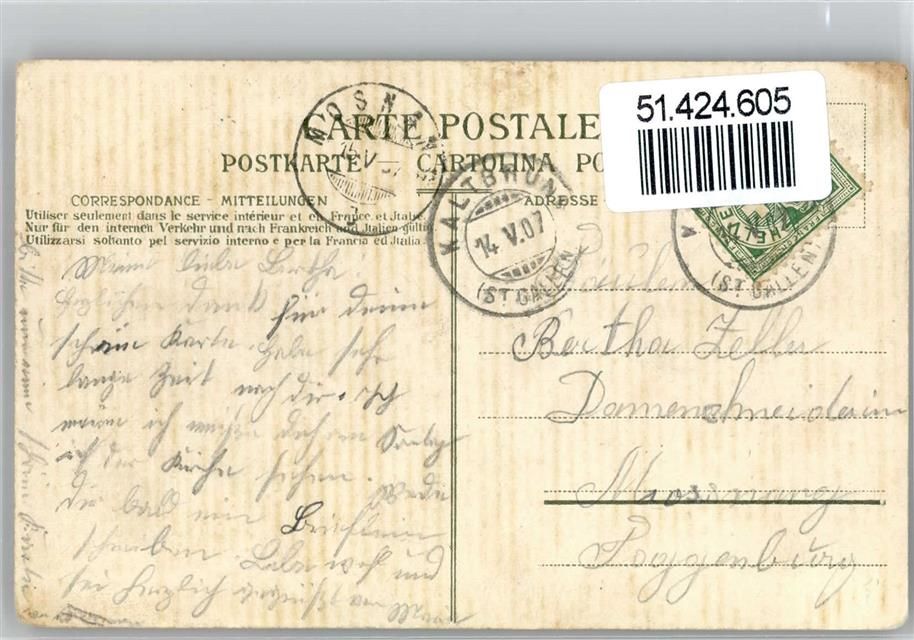 51.424.605
CARTE POSTALE
POSTKARTE - CARTOLINA PO
CORRESPONDANCE - MITTEILUNGEN
ADRESSE
Utiliser seulement dans le service intérieur et en France et Italie
Nur für den internen Verkehr und nach Frankreich und Italien gültig
Utilizzarsi soltanto pel servizio interno e per la Francia ed Italia
MOSNANG
KALTBRUNN
14.V.07
(ST. GALLEN)
(ST. GALLEN)
Meine liebe Bertha.
Herzlichen dank für deine
schöne Karte. Habe sehr
lange Zeit nach dir. Ich
meine ich müsse dich am Sontag
in der Kirche sehen. Werde
dir bald ein Brieflein
schreiben. Lebe wohl und
sei herzlich gegrüsst von
Fräulein
Bertha Zeller
Damenschneiderin
Mossnang
Toggenburg